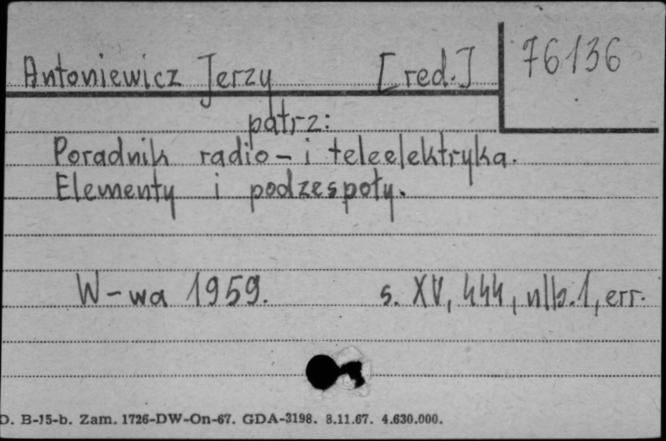 Antoniewicz Jerzy [red.] 76136
patrz:
Poradnik radio- i teleelektryka.
Elementy i podzespoły.
W-wa 1959. s. XV, 444, nlb. 1, err.
D. B-15-b. Zam. 1726-DW-On-67. GDA-3198. 8.11.67. 4.630.000.